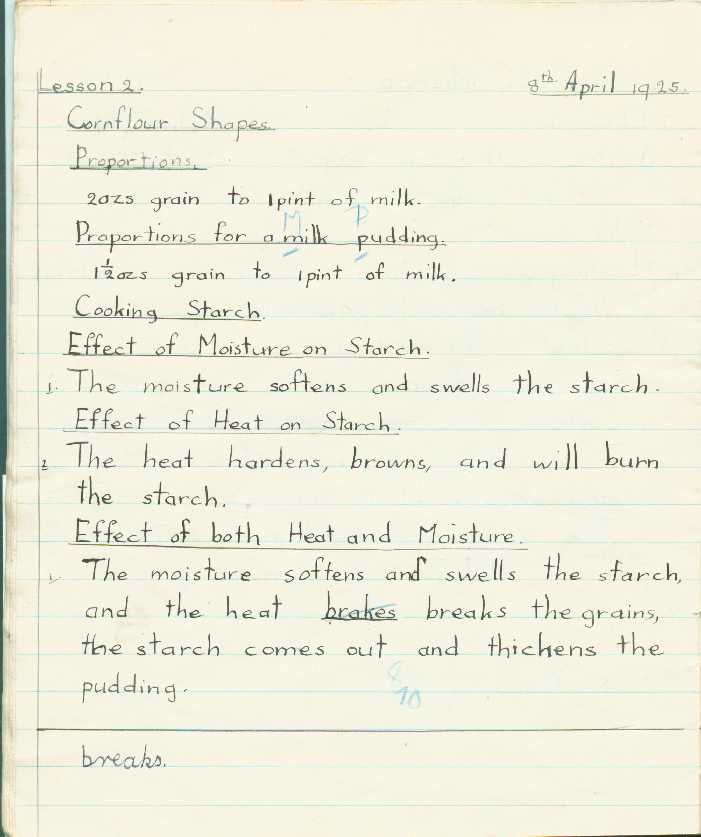 Lesson 2. 8th April 1925.
Cornflour Shapes.
Proportions.
2ozs grain to 1pint of milk.
M P
Proportions for a milk pudding.
1½ozs grain to 1pint of milk.
Cooking Starch.
Effect of Moisture on Starch.
1. The moisture softens and swells the starch.
Effect of Heat on Starch.
2. The heat hardens, browns, and will burn
the starch.
Effect of both Heat and Moisture.
1. The moisture softens and swells the starch,
and the heat brakes breaks the grains,
the starch comes out and thickens the
pudding.
8/10
breaks.